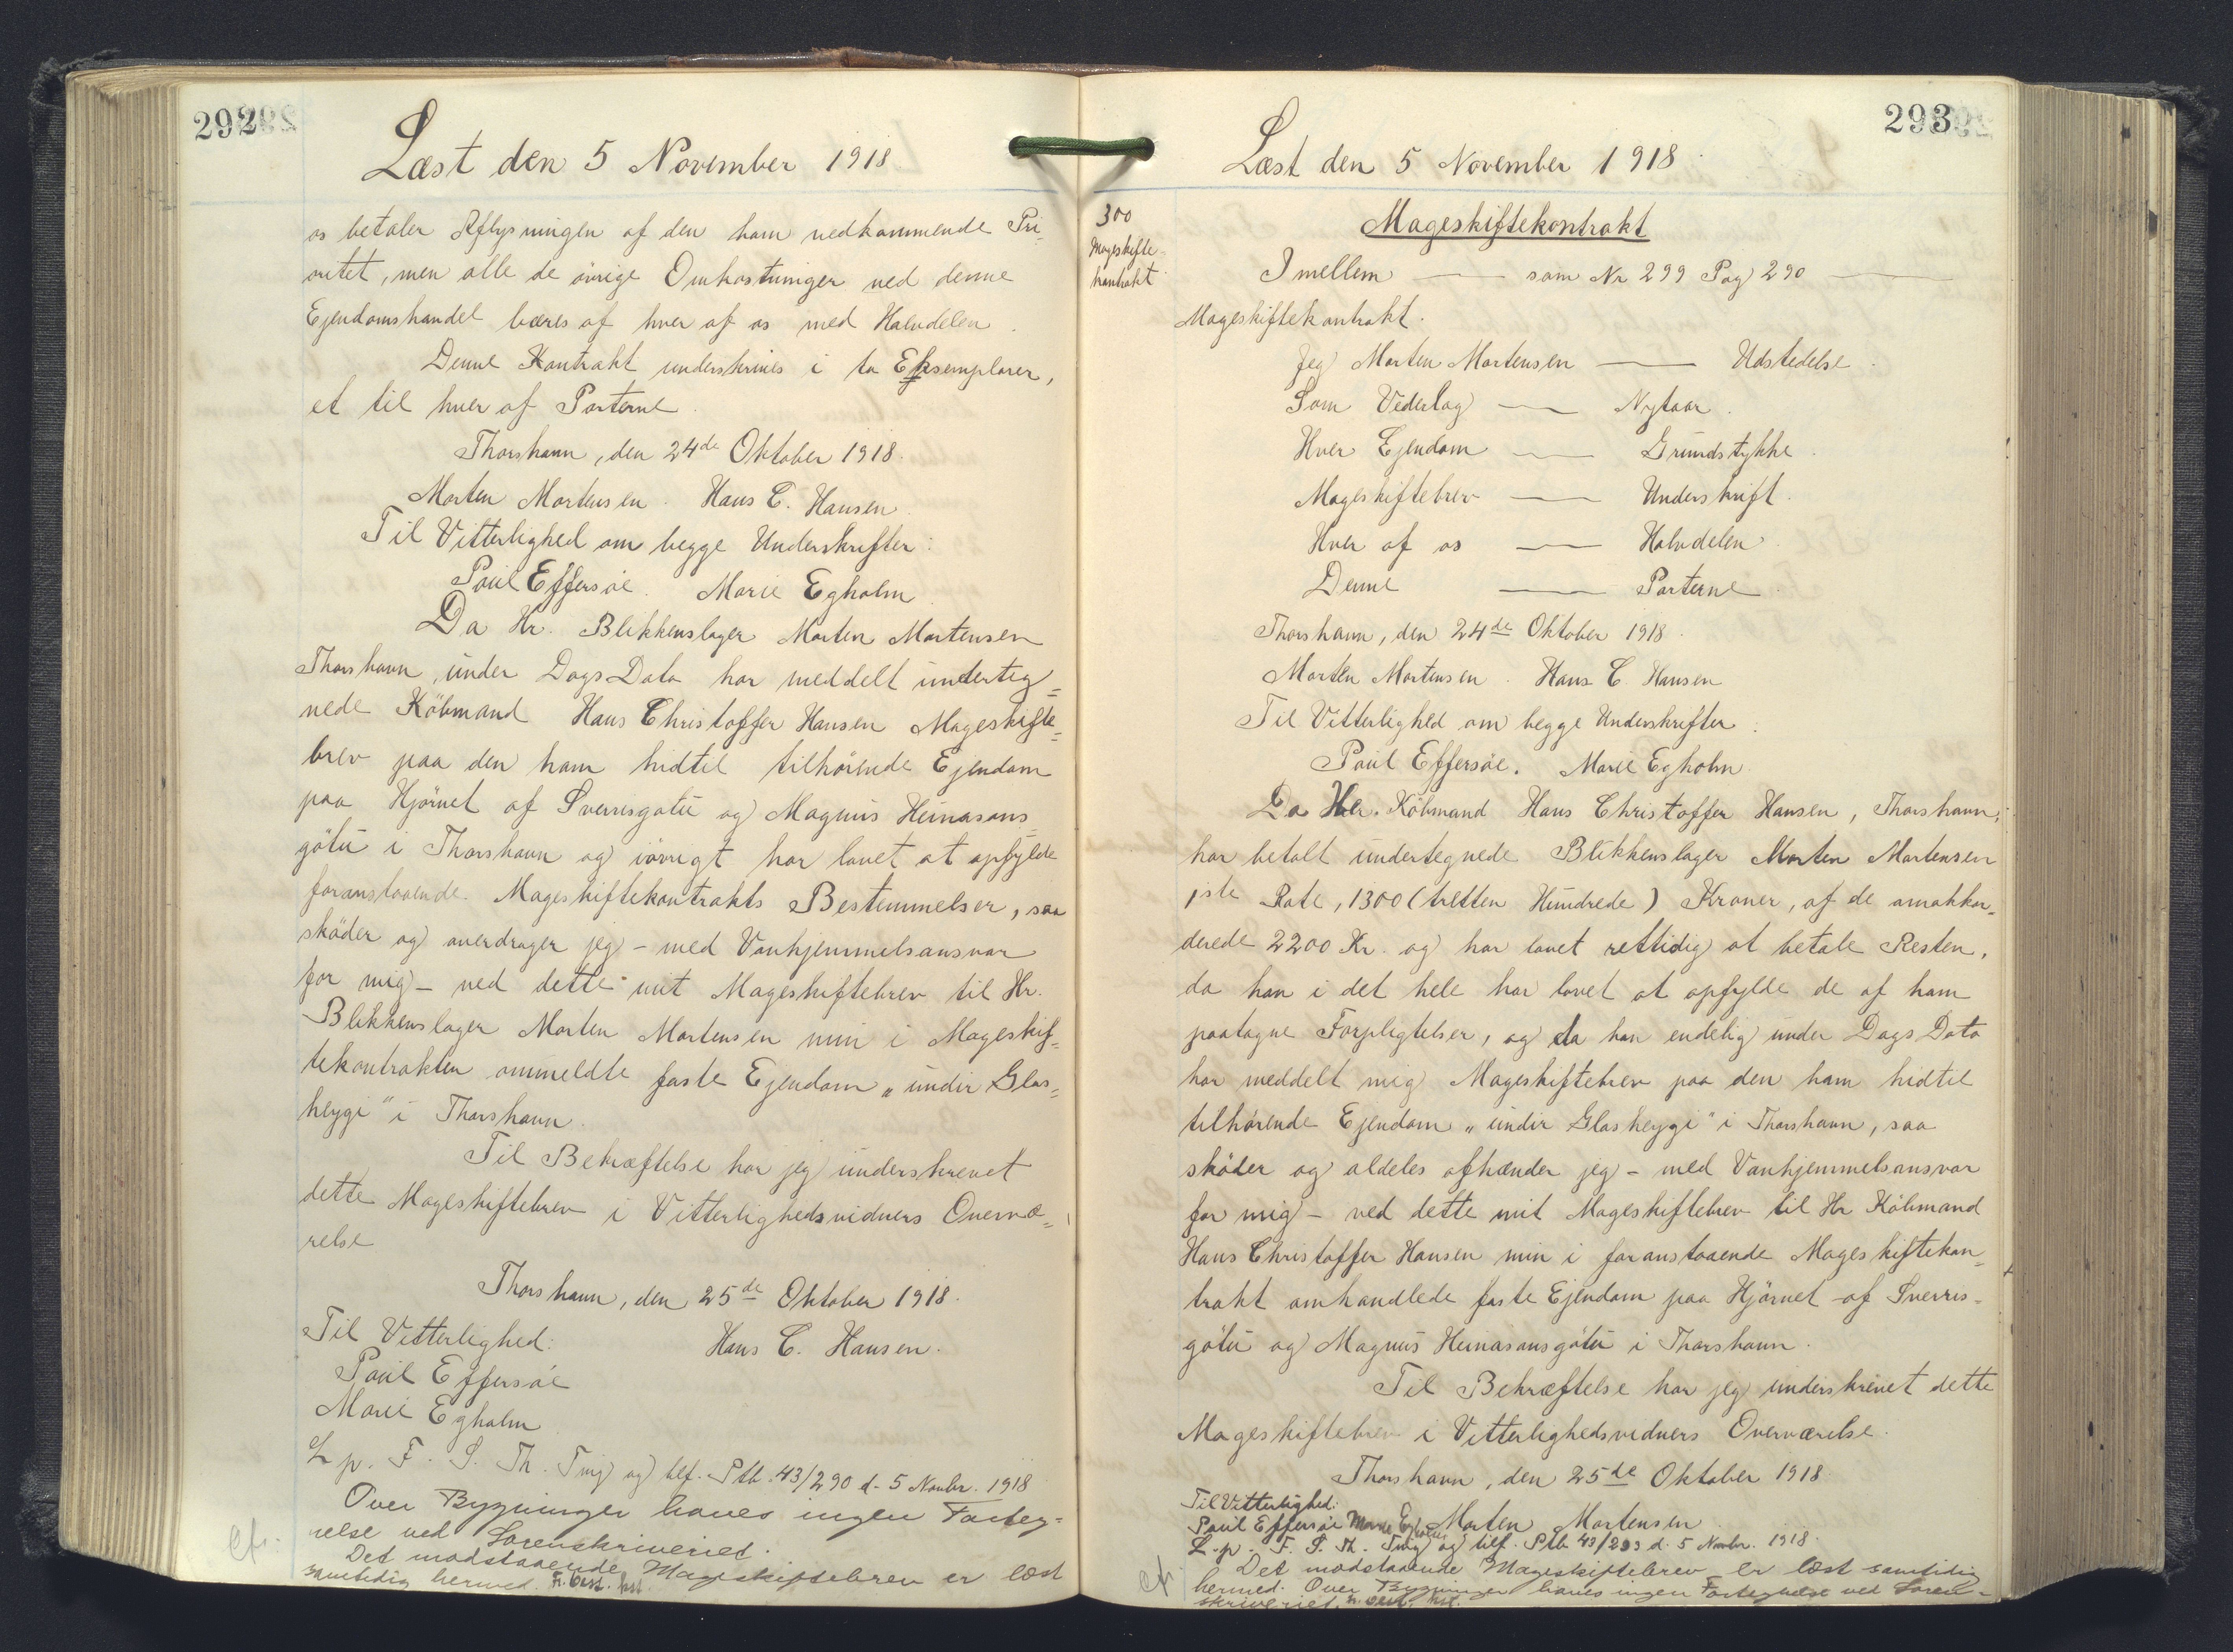 292
Læst den 5 November 1918
os betaler Aflysningen af den ham vedkommende Pri-
oritet, men alle de øvrige Omkostninger ved denne
Ejendomshandel bæres af hver af os med Halvdelen.
Denne Kontrakt underskrives i to Eksemplarer,
et til hver af Parterne.
Thorshavn, den 24de Oktober 1918.
Morten Mortensen. Hans C. Hansen.
Til Vitterlighed om begge Underskrifter:
Poul Effersøe. Marie Egholm.
Da Hr. Blikkenslager Morten Mortensen
Thorshavn, under Dags Dato har meddelt underteg=
nede Købmand Hans Christoffer Hansen Mageskifte=
brev paa den ham hidtil tilhørende Ejendom
paa Hjørnet af Sverrisgøtu og Magnus Heinasons
gøtu i Thorshavn og iøvrigt har lovet at opfylde
foranstaaende Mageskiftekontrakts Bestemmelser, saa
skøder og overdrager jeg - med Vanhjemmelsansvar
for mig - ved dette mit Mageskiftebrev til Hr.
Blikkenslager Morten Mortensen min i Mageskif=
tekontrakten ommeldte faste Ejendom „undir Glas=
heygi" i Thorshavn.
Til Bekræftelse har jeg underskrevet
dette Mageskiftebrev i Vitterlighedsvidners Overvæ=
relse
Thorshavn, den 25de Oktober 1918.
Til Vitterlighed: Hans C. Hansen.
Poul Effersøe
Marie Egholm
L. p. F. S. Th. Ting og tilf. Ptb. 43/290 d. 5 Novbr. 1918
Over Bygninger haves ingen Forteg=
nelse ved Sorenskriveriet.
cfr.
Det modstaaende Mageskiftebrev er læst
samtidig hermed.
293
Læst den 5 November 1918.
300
Mageskifte-
kontrakt
Mageskiftekontrakt
Imellem — som Nr 299 Pag 290 —
Mageskiftekontrakt.
Jeg Morten Mortensen — Udstedelse.
Som Vederlag — Nytaar.
Hver Ejendom — Grundstykke.
Mageskiftebrev — Underskrift.
Hver af os — Halvdelen.
Denne — Parterne.
Thorshavn, den 24de Oktober 1918.
Morten Mortensen. Hans C. Hansen
Til Vitterlighed om begge Underskrifter.
Poul Effersøe. Marie Egholm.
Da Hr. Købmand Hans Christoffer Hansen, Thorshavn,
har betalt undertegnede Blikkenslager Morten Mortensen
1ste Rate, 1300 (tretten Hundrede) Kroner, af de omakkor=
derede 2200 Kr. og har lovet rettidig at betale Resten,
da han i det hele har lovet at opfylde de af ham
paatagne Forpligtelser, og da han endelig under Dags Dato
har meddelt mig Mageskiftebrev paa den ham hidtil
tilhørende Ejendom „undir Glasheygi" i Thorshavn, saa
skøder og aldeles afhænder jeg - med Vanhjemmelsansvar
for mig - ved dette mit Mageskiftebrev til Hr Købmand
Hans Christoffer Hansen min i foranstaaende Mageskiftekon=
trakt omhandlede faste Ejendom paa Hjørnet af Sverris=
gøtu og Magnus Heinasonsgøtu i Thorshavn.
Til Bekræftelse har jeg underskrevet dette
Mageskiftebrev i Vitterlighedsvidners Overværelse.
Thorshavn, den 25de Oktober 1918
Til Vitterlighed:
Poul Effersøe Marie Egholm Morten Mortensen
L. p. F. S. Th. Ting og tilf. Ptb 43/293 d. 5 Novbr. 1918.
cfr.
Det modstaaende Mageskiftebrev er læst samtidig
hermed. Over Bygninger haves ingen Fortegnelse ved Soren=
skriveriet.